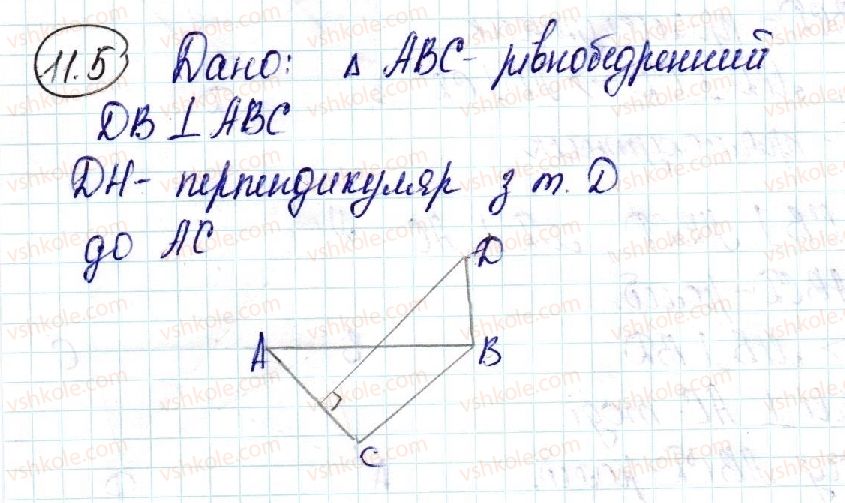 11.5 Дано: Δ ABC - рівнобедренний
DB ⊥ ABC
DH - перпендикуляр з т. D
до AC
D
A
B
C